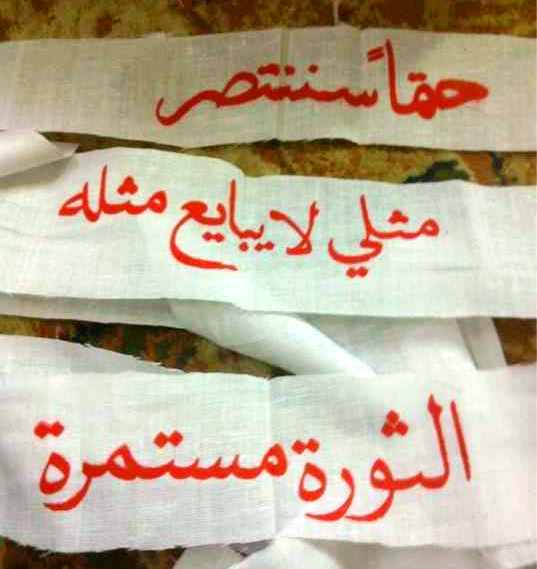 حقاً سننتصر
مثلي لا يبايع مثله
الثورة مستمرة